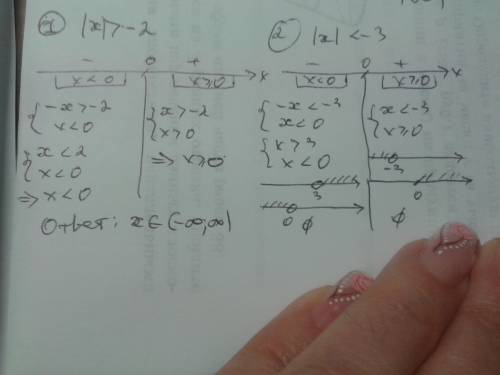 1 |x|>-2
- 0 +
x<0 x≥0 x
{-x>-2
x<0
{x<2
x<0
=> x<0
{x>-2
x≥0
=> x≥0
Ответ: x∈(-∞;∞)
2 |x|<-3
- 0 +
x<0 x≥0 x
{-x<-3
x<0
{x>3
x<0
3
0 ∅
{x<-3
x≥0
-3
0
∅